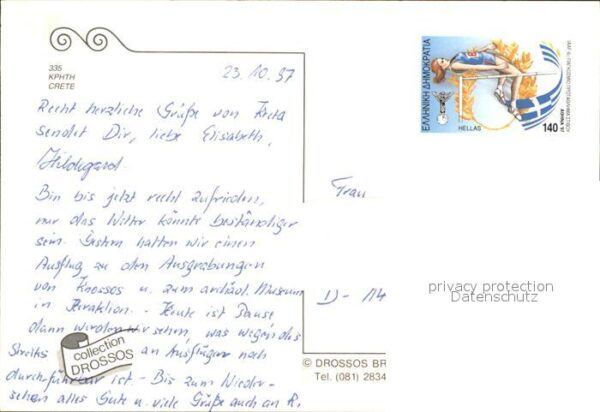 335
ΚΡΗΤΗ
CRETE
23.10.97
Recht herzliche Grüße von Kreta
sendet Dir, liebe Elisabeth,
Hildegard.
Bin bis jetzt recht zufrieden,
nur das Wetter könnte beständiger
sein. Gestern hatten wir einen
Ausflug zu den Ausgrabungen
von Knossos u. zum archäol. Museum
in Heraklion. - Heute ist Pause
dann werden wir sehen, was wegen des
Streiks an Ausflügen noch
durchführbar ist. - Bis zum Wieder-
sehen alles Gute u. viele Grüße auch an R.
collection
DROSSOS
ΕΛΛΗΝΙΚΗ ΔΗΜΟΚΡΑΤΙΑ
HELLAS
140
Frau
D-
privacy protection
Datenschutz
© DROSSOS BR
Tel. (081) 2834